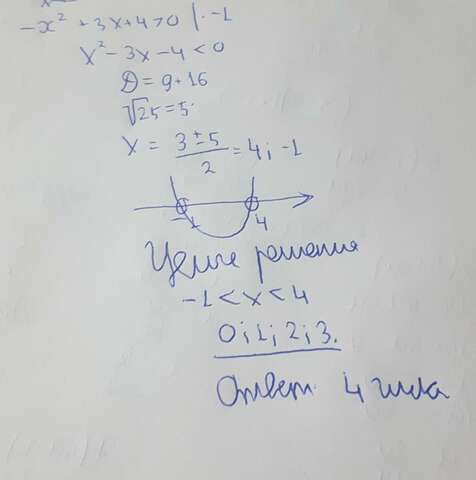 -x² + 3x + 4 > 0 | · -1
x² - 3x - 4 < 0
D = 9 + 16
√25 = 5
x = (3 ± 5)/2 = 4; -1
-1 4
Целые решения
-1 < x < 4
0; 1; 2; 3.
Ответ: 4 числа